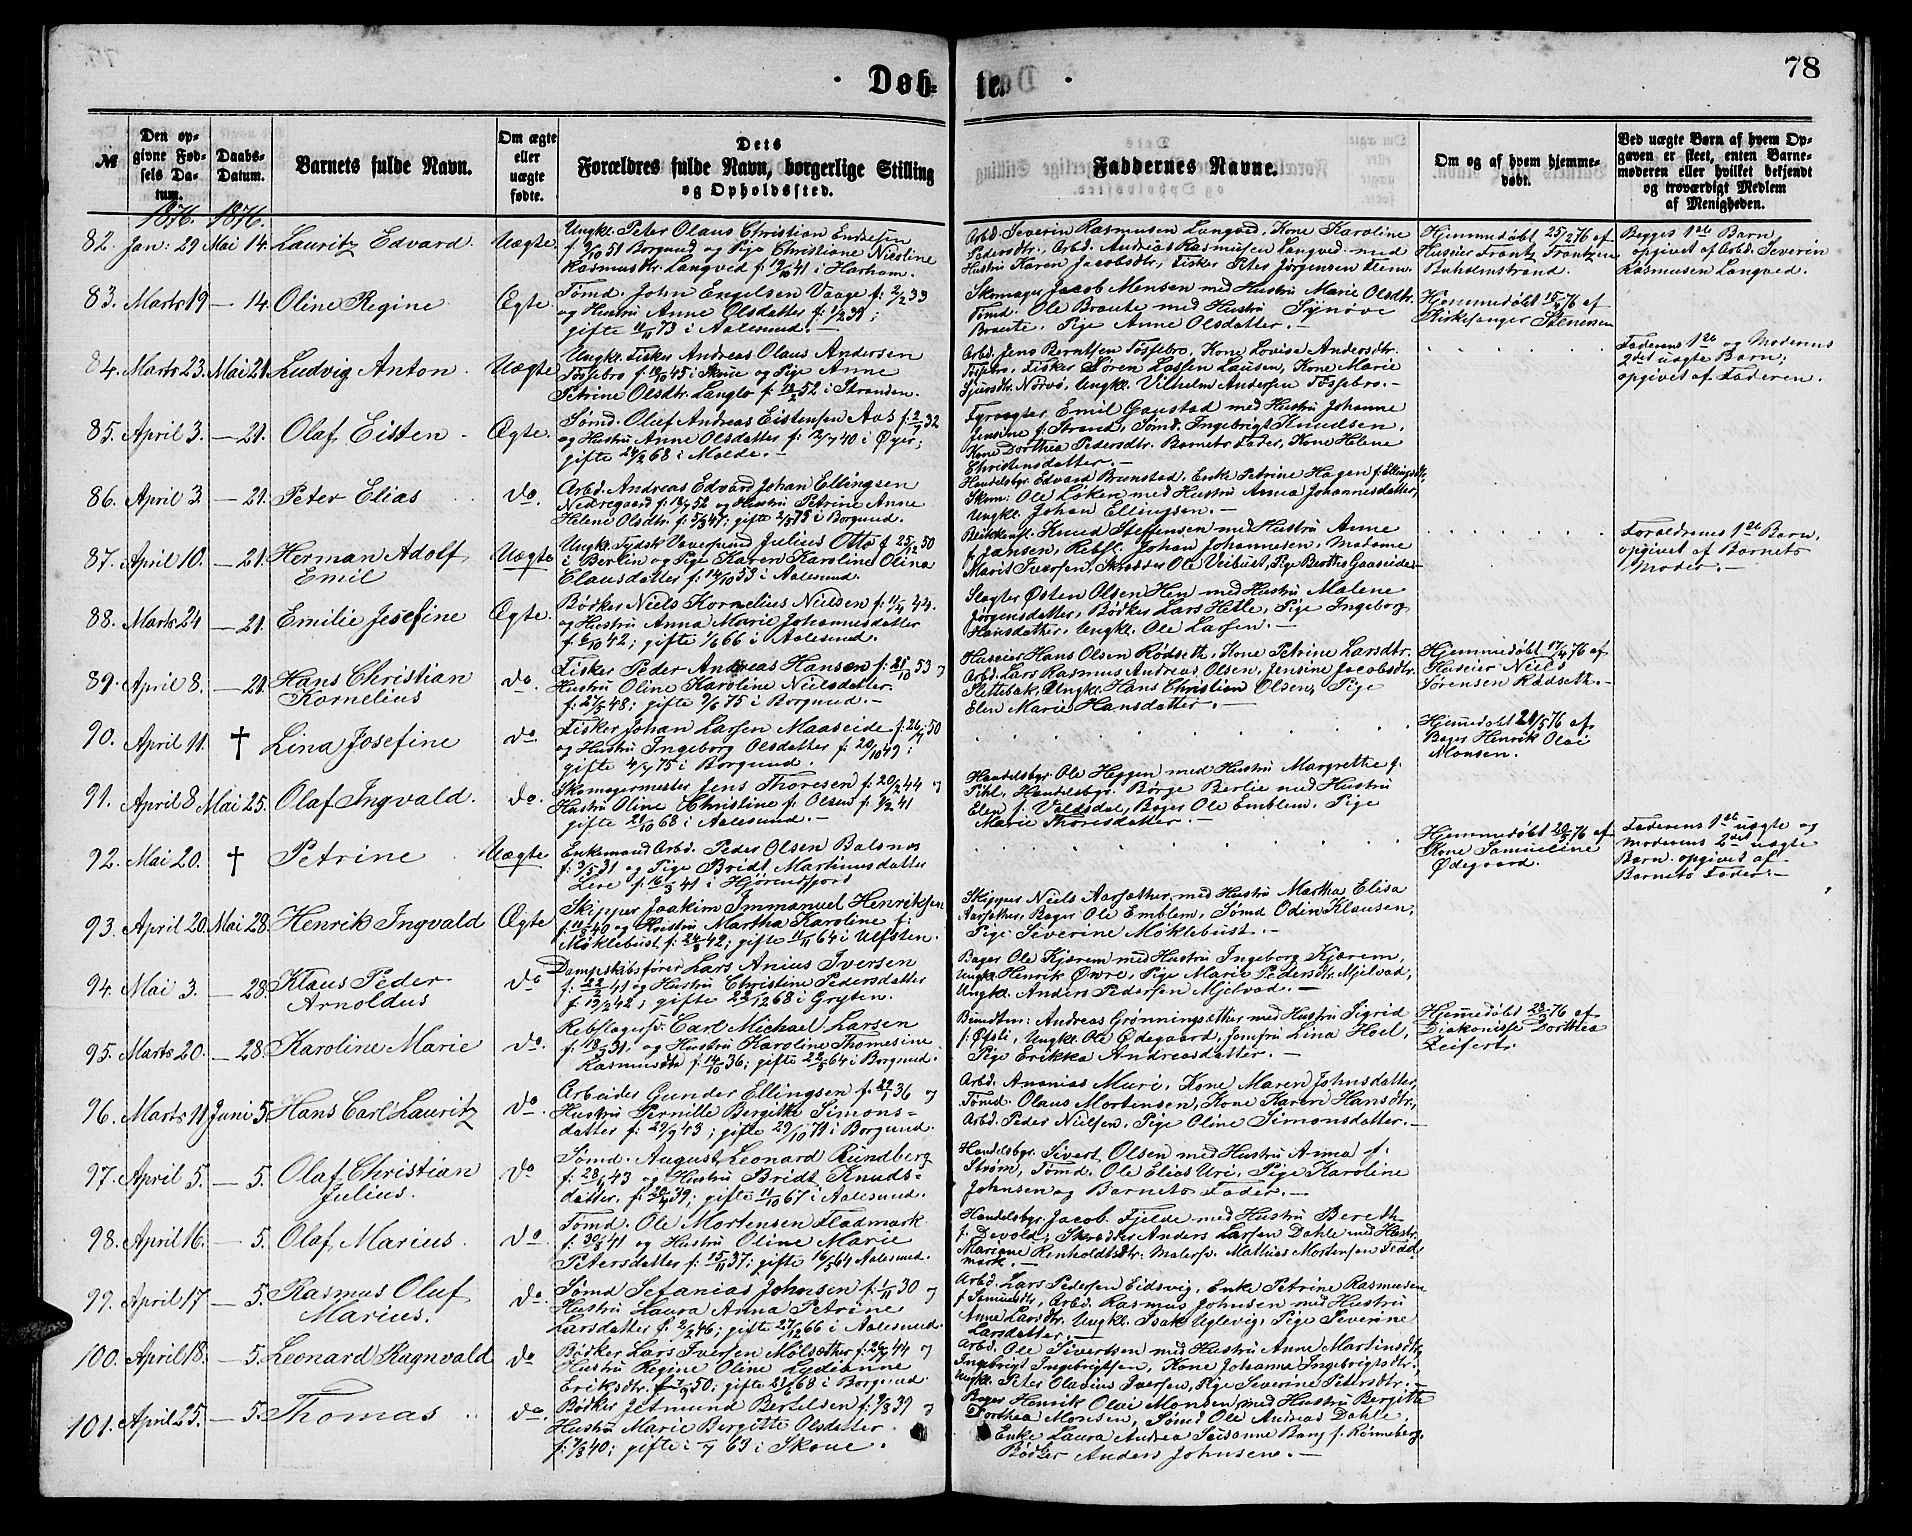 78
Døb-
te.
№
Den op-
givne Fød-
sels Da-
tum.
Daabs-
Datum.
Barnets fulde Navn.
Om ægte
eller
uægte
fødte.
Dets
Forældres fulde Navn, borgerlige Stilling
og Opholdssted.
Faddernes Navne.
Om og af hvem hjemme-
døbt.
Ved uægte Børn af hvem Op-
gaven er skeet, enten Barne-
moderen eller hvilket bekjendt
og troværdigt Medlem
af Menigheden.
1876. 1876.
82. Jan: 29 Mai 14. Lauritz Edvard. Uægte.
Ungkl. Peter Olaus Christian Endresen
f. 9/10 51 Borgund og Pige Christiane Nicoline
Rasmusdtr. Langved f: 41 i Harham.
Arbd. Severin Rasmussen Langved, Kone Karoline
Pedersdtr. Arbd. Andreas Rasmussen Langved med
Hustru Karen Jacobsdtr, Fisker Peter Jørgensen Flem.
Hjemmedøbt 25/2 76 af
Huseier Frantz Frantzen
Buholmstrand.
Begges 1ste Barn,
opgivet af Arbd. Severin
Rasmussen Langved.
83. Marts 19 — 14. Oline Regine Ægte.
Tømd. John Engelsen Vaage f: 2/2 33
og Hustru Anne Olsdatter f: 1/2 39;
gifte 11/11 73 i Aalesund. —
Skomager Jacob Monsen med Hustru Marie Olsdtr.
Tømd. Ole Braute med Hustru Synøve
Braute, Pige Anne Olsdatter. —
Hjemmedøbt 15/4 76 af
Kirkesanger Stenersen
84. Marts 23. Mai 21. Ludvig Anton. Uægte
Ungkl. Fisker Andreas Olaus Andersen
Fossebro f. 45 i Skue og Pige Anne
Petrine Olsdtr. Langlo f: 52 i Stranden.
Arbd. Jens Berntsen Fossebro, Kone Lovise Andersdtr.
Fossebro, Fisker Søren Larsen Lausen, Kone Marie
Sjursdtr. Norvø, Ungkl. Vilhelm Andersen Fossebro. —
Faderens 1ste og Moderens
2det uægte Barn;
opgivet af Faderen.
85. April 3. — 21. Olaf Eisten. Ægte.
Sømd. Oluf Andreas Eistensen Aas f: 32
og Hustru Anne Olsdatter f: 12/7 40 i Øyer;
gifte 24/2 68 i Molde. —
Fyrvogter Emil Gaustad med Hustru Johanne
Jensine f. Strand, Sømd. Ingebrigt Knudsen,
Kone Dorthea Pedersdtr. Barnets Fader, Kone Helene
Christensdatter. —
86. April 3. — 21. Peter Elias do.
Arbd. Andreas Edvard Johan Ellingsen
Nedregaard f: 52 og Hustru Petrine Anne
Helene Olsdtr. f: 5/3 47; gifte 75 i Borgund.
Handelsbgr. Edvard Brunstad. Enke Petrine Hagen f. Ellingsdtr,
Skom: Ole Løken med Hustru Anna Johannesdatter,
Ungkl. Johan Ellingsen. —
87. April 10. — 21. Herman Adolf
Emil Uægte
Ungkl. Tydsk Vaversvnd Julius Otto f 25/12 50
i Berlin og Pige Karen Karoline Olina
Clausdatter f: 14/10 53 i Aalesund.
Blikkensl. Knud Steffensen med Hustru Anne
f. Jansen, Rebsl. Johan Johannesen, Madame
Marit Iversen, Skrædder Ole Veibust, Pige Berthe Gaaseide —
Forældrenes 1ste Barn,
opgivet af Barnets
Moder. —
88. Marts 24 — 21. Emilie Josefine Ægte.
Bødker Niels Kornelius Nielsen f: 11/4 44.
og Hustru Anna Marie Johannesdatter
f. 6/10 42; gifte 1/6 66 i Aalesund.
Slagter Østen Olsen Hen med Hustru Malene
Jørgensdatter, Bødker Lars Hitle, Pige Ingeborg
Hansdatter, Ungkl. Ole Larsen. —
89. April 8. — 21. Hans Christian
Kornelius do.
Fisker Peder Andreas Hansen f: 21/10 53 og
Hustru Oline Karoline Nielsdatter.
f: 27/5 48; gifte 75 i Borgund. —
Huseier Hans Olsen Rødseth, Kone Petrine Larsdtr.
Arbd. Lars Rasmus Andreas Olsen, Jensine Jacobsdtr.
Slettebak, Ungkl. Hans Christian Olsen, Pige
Elen Marie Hansdatter. —
Hjemmedøbt 17/4 76 af
Huseier Niels
Sørensen Rødseth. —
90. April 11. † Lina Josefine do
Fisker Johan Larsen Maaseide f: 26/7 50
og Hustru Ingeborg Olsdatter f: 20/10 49;
gifte 4/7 75 i Borgund.
Hjemedøbt 21/5 76 af
Bager Henrik Olai
Monsen.
91. April 8 Mai 25. Olaf Ingvald. do.
Skomagermester Jens Thoresen f: 20/2 44 og
Hustru Oline Christine f. Olsen f: 41
gifte 21/10 68 i Aalesund. —
Handelsbgr. Ole Heggen med Hustru Margrethe f.
Pihl, Handelsbgr. Børge Berlie med Hustru
Elen f. Valdsdal, Bager Ole Emblem, Pige
Marie Thoresdatter. —
92. Mai 20. † Petrine Uægte
Enkemand Arbd. Peder Olsen Balsnes
f: 3/5 31 og Pige Bridt Martinusdatter
Leve f: 16/3 41 i Hjørendfjord
Hjemmedøbt 20/5 76 af
Kone Samueline
Ødegaard.
Faderens 1ste uægte og
Moderens 2det uægte
Barn. opgivet af
Barnets Fader. —
93. April 20. Mai 28. Henrik Ingvald Ægte
Skipper Joakim Immanuel Henriksen
f. 40 og Hustru Martha Karoline f:
Møklebust f: 24/3 42; gifte 11/11 64 i Ulfsten.
Skipper Niels Aarsæther med Hustru Martha Elisa
Aarsæther, Bager Ole Emblem, Sømd Odin Klausen,
Pige Severine Møklebust. —
94. Mai 3. — 28. Klaus Peder
Arnoldus do
Dampskibsfører Lars Anius Iversen
f. 22/2 41 og Hustru Christine Pedersdatter
f. 42; gifte 68 i Gryten.
Bager Ole Kjærem med Hustru Ingeborg Kjærem,
Ungkl. Henrik Øwre, Pige Marie Pedersdtr. Mjelvad,
Ungkl. Anders Pedersen Mjelvad. —
95. Marts 20. — 28. Karoline Marie do.
Rebslagersv. Carl Michael Larsen
f: 18/3 31, og Hustru Karoline Thomesine
Rasmusdtr f: 14/10 36; gifte 22/5 64 i Borgund.
Bundtm: Andreas Grønningsæther med Hustru Sigrid
f. Øfsti, Ungkl. Ole Ødegaard, Jomfru Lina Hoel,
Pige Erikka Andreasdatter. —
Hjemedøbt 76 af
Diakonisse Dorthea
Zeifert.
96. Marts 11 Juni 5. Hans Carl Lauritz do.
Arbeider Gunder Ellingsen f. 29/1 36 og
Hustru Pernille Bergitte Simons-
datter f: 29/9 43; gifte 29/10 71 i Borgund.
Arbd. Ananias Muri, Kone Maren Johnsdatter,
Tømd. Olaus Mortensen, Kone Karen Hansdtr,
Arbd. Peder Nielsen, Pige Oline Simonsdatter. —
97. April 5. — 5. Olaf Christian
Julius. do
Sømd. August Leonard Rundberg
f: 28/1 43 og Hustru Bridt Knuds-
datter. f: 39; gifte 11/10 67 i Aalesund.
Handelsbgr. Sivert Olsen med Hustru Anna f.
Strøm, Tømd. Ole Elias Uri, Pige Karoline
Johnsen og Barnets Fader. —
98. April 16. — 5. Olaf Marius. do.
Tømd. Ole Mortensen Fladmark
f: 30/8 41 og Hustru Oline Marie
Petersdatter f: 15/11 37; gifte 16/5 64 Aalesund.
Handelsbgr. Jacob Fjelde med Hustru Bereth
f. Devold, Skræder Anders Larsen Dahle med Hustr.
Mariane Renholdtsdtr. Malersv. Mathias Mortensen Flad-
mark. —
99. April 17 — 5. Rasmus Oluf
Marius. do.
Sømd Sefanias Johnsen f. 1/11 30 og
Hustru Laura Anna Petrine
Larsdatter f: 2/2 46; gifte 27/12 66 i Aalesund.
Arbd. Lars Pedersen Eidsvig, Enke Petrine Rasmussen
f. Samuelsdtr, Arbd. Rasmus Johnsen med Hustru
Anne Larsdtr. Ungkl. Isak Uglevig, Pige Severine
Larsdatter. —
100. April 18. — 5. Leonard Ragnvald do
Bødker Lars Iversen Mølsæther f: 44 og
Hustru Regine Oline Lydianne
Eriksdtr. f 50; gifte 68 i Borgund.
Arbd. Ole Sivertsen med Hustru Anne Martinsdtr,
Ingebrigt Ingebrigtsen, Kone Johanna Ingebrigtsdtr.
Ungkl. Peter Olavius Iversen, Pige Severine Petersdtr. —
101. April 25. — 5. Thomas do.
Bødker Jetmund Bertelsen f: 39 og
Hustru Marie Bergitte Olsdatter
f: 7/3 40; gifte i 63 i Skone.
Bager Henrik Olai Monsen med Hustru Bergitte
Dorthea Monsen, Sømd Ole Andreas Dahle,
Enke Laura Andrea Susanne Bang f. Rønneberg,
Bødker Anders Johnsen. —